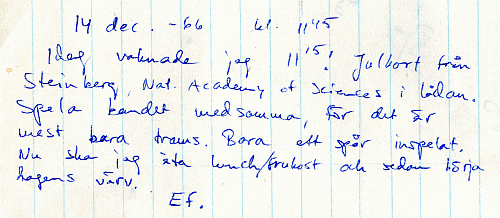 14 dec. -66 kl. 11⁴⁵
Idag vaknade jag 11¹⁵! Julkort från
Steinberg, Nat. Academy of Sciences i lådan.
Spela bandet medsamma, för det är
mest bara trams. Bara ett spår inspelat.
Nu ska jag äta lunch/frukost och sedan börja
dagens värv.
Ef.